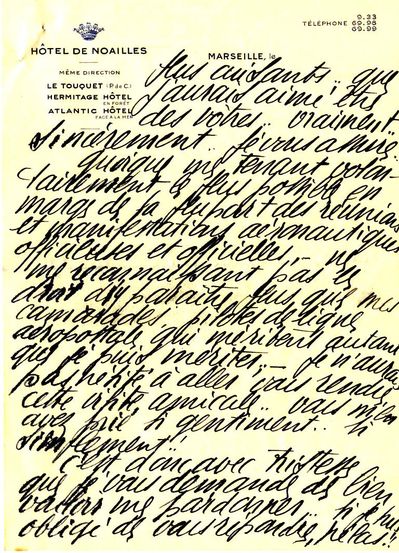 9.33
TÉLÉPHONE 69.98
69.99
HÔTEL DE NOAILLES
MARSEILLE, le
MÊME DIRECTION
LE TOUQUET (P. de C.)
HERMITAGE HÔTEL
EN FORÊT
ATLANTIC HÔTEL
FACE A LA MER
plus cuisants.. que
j'aurais aimé être
des vôtres.. vraiment..
sincèrement.. je vous assure
quoique me tenant volon-
tairement le plus possible en
marge de la plupart des réunions
et manifestations aéronautiques
officieuses et officielles.. ne
me reconnaissant pas le
droit d'y paraître plus que mes
camarades pilotes de ligne
aéropostale qui méritent autant
que je puis mériter.. je n'aurais
pas hésité à aller vous rendre
cette visite amicale.. vous m'en
avez prié si gentiment.. si
simplement..!
C'est donc avec tristesse
que je vous demande de bien
vouloir me pardonner.. si je suis
obligé de vous répondre, hélas!!